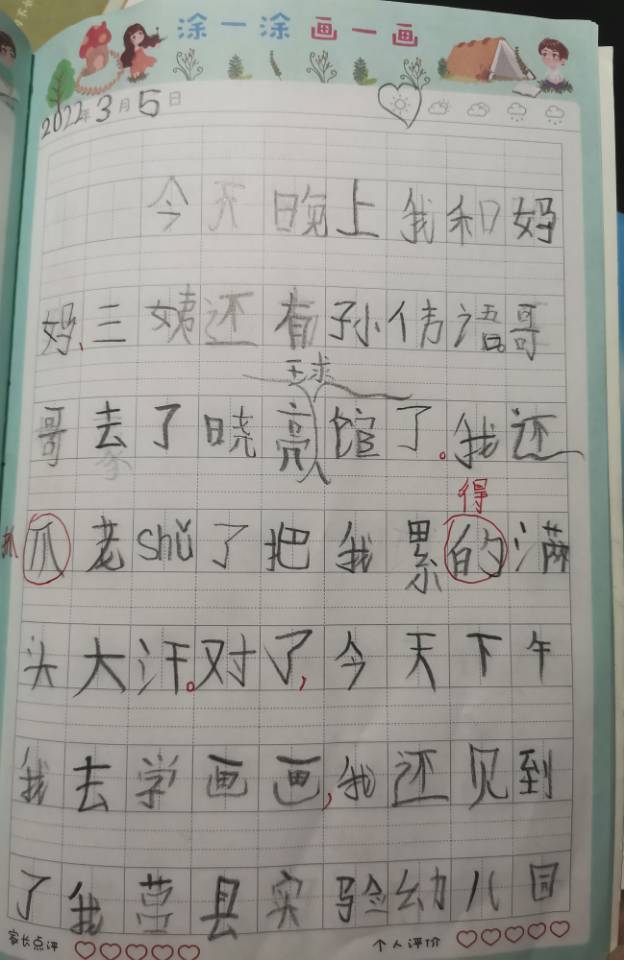 涂一涂画一画
2022年3月5日
今天晚上我和妈
妈、三姨还有孙伟语哥
王求
哥去了晓亮馆了。我还
得
抓
爪老shǔ了把我累的满
头大汗。对了,今天下午
我去学画画,我还见到
了我莒县实验幼儿园
家长点评
个人评价